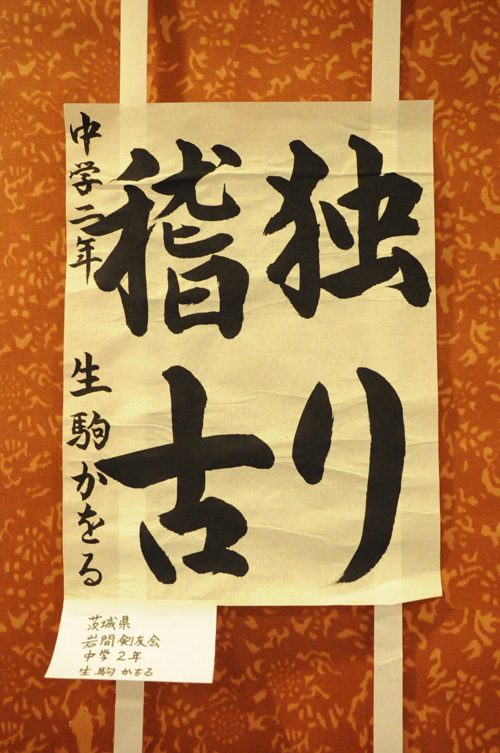 独り
稽古
中学二年 生駒かをる
茨城県
岩間剣友会
中学2年
生駒かをる